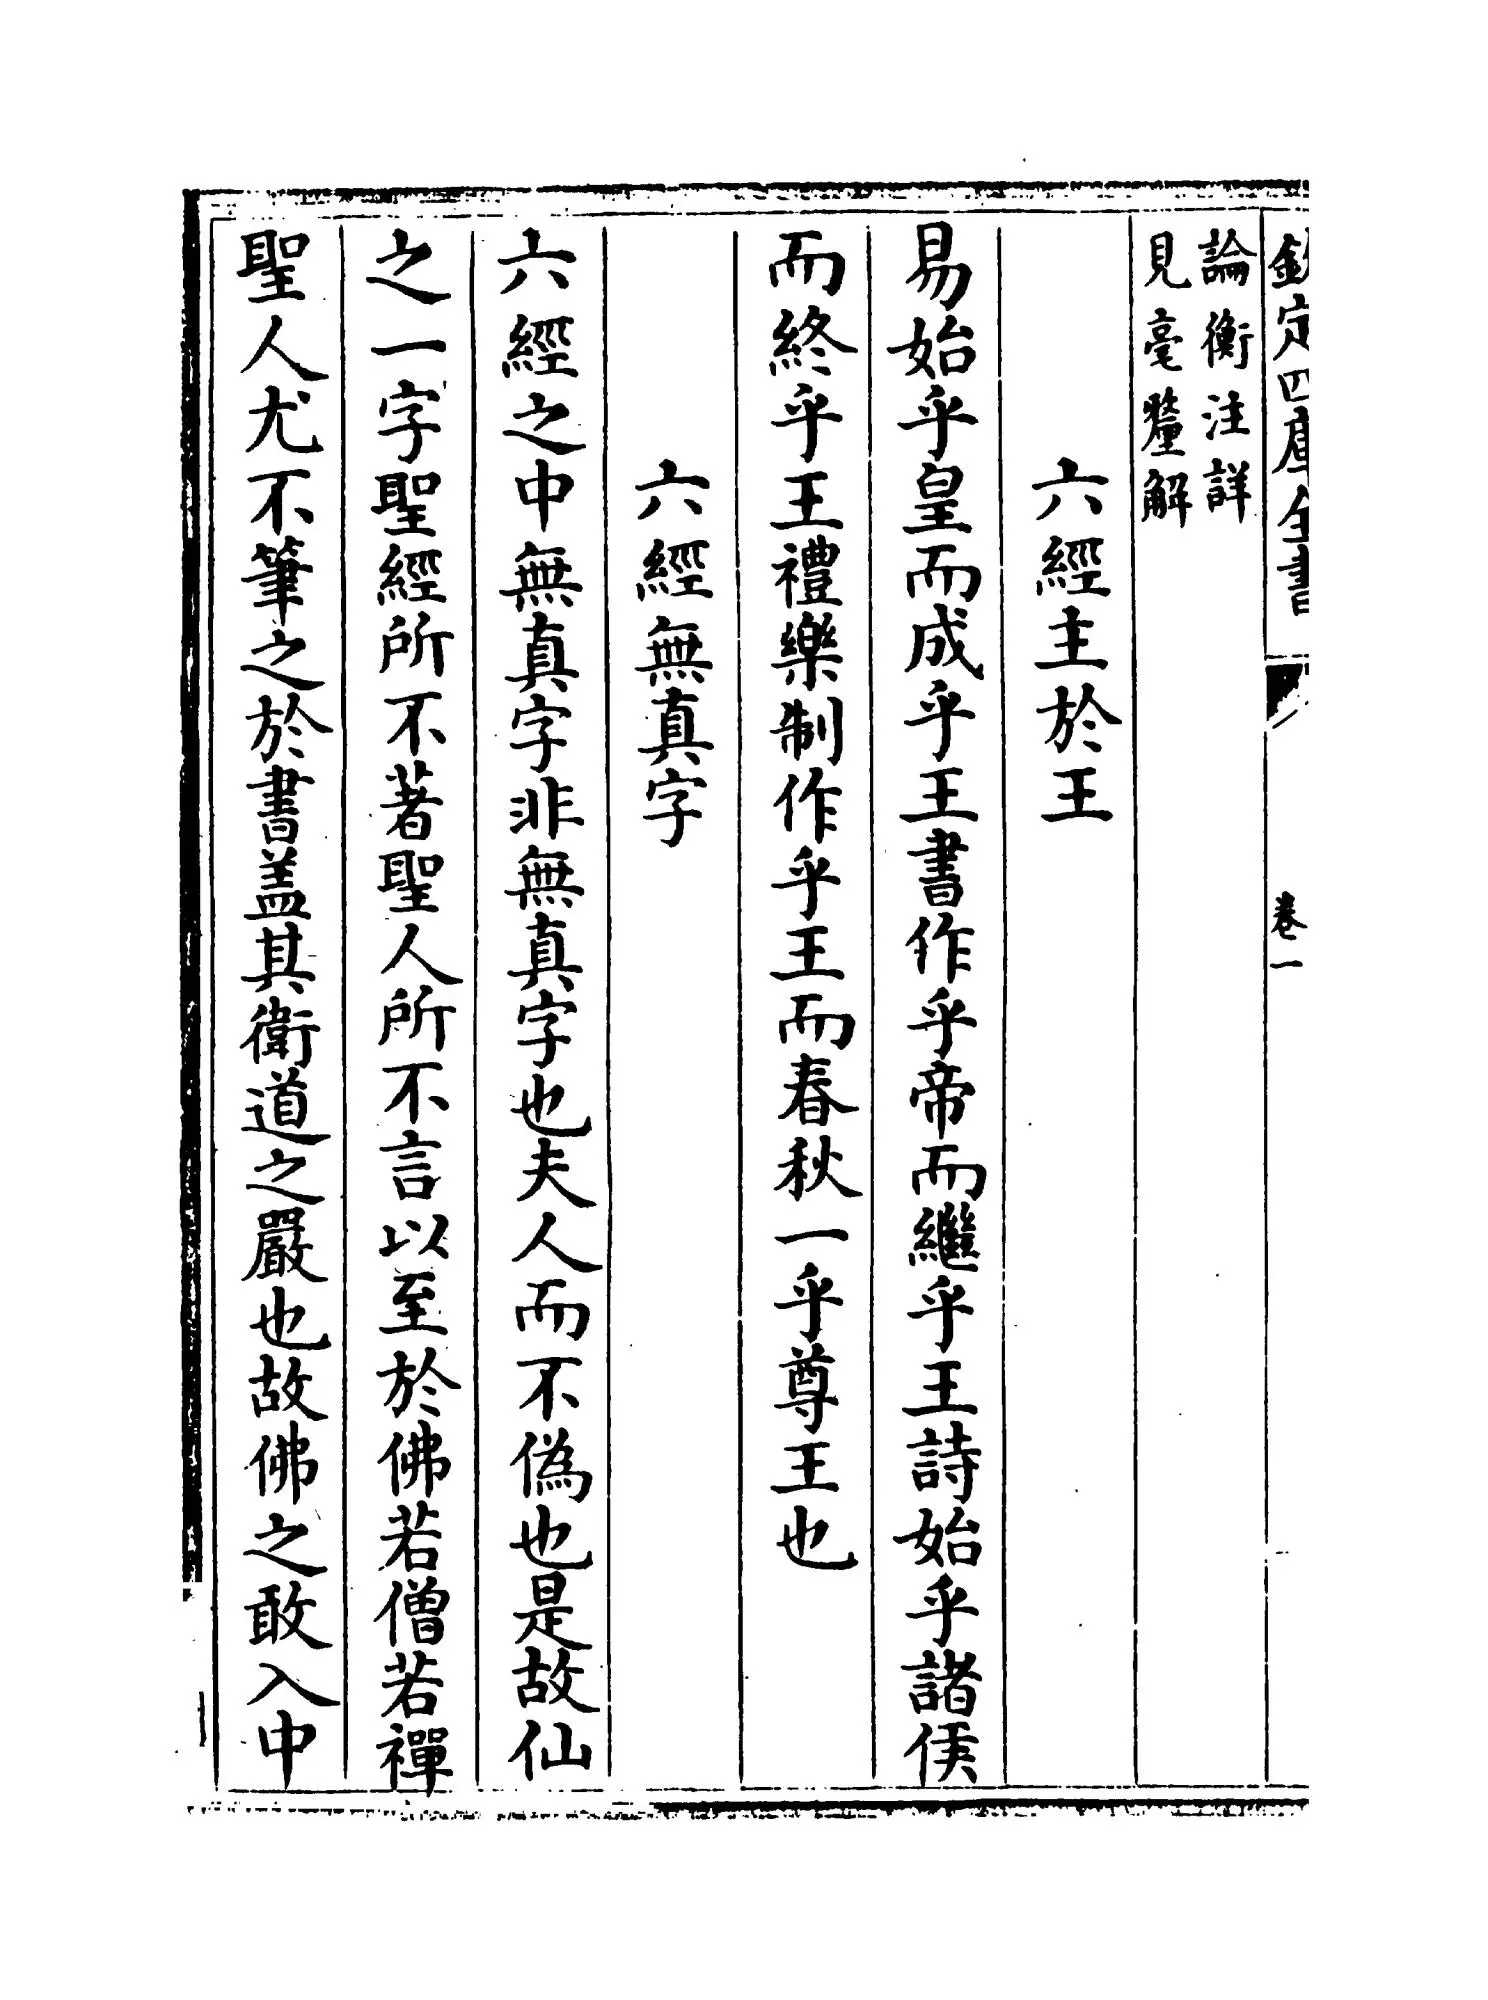 欽定四庫全書
卷一
論衡注詳
見毫釐解
六經主於王
易始乎皇而成乎王書作乎帝而繼乎王詩始乎諸侯
而終乎王禮樂制作乎王而春秋一乎尊王也
六經無真字
六經之中無真字非無真字也夫人而不偽也是故仙
之一字聖經所不著聖人所不言以至於佛若僧若禪
聖人尤不筆之於書盖其衛道之嚴也故佛之敢入中